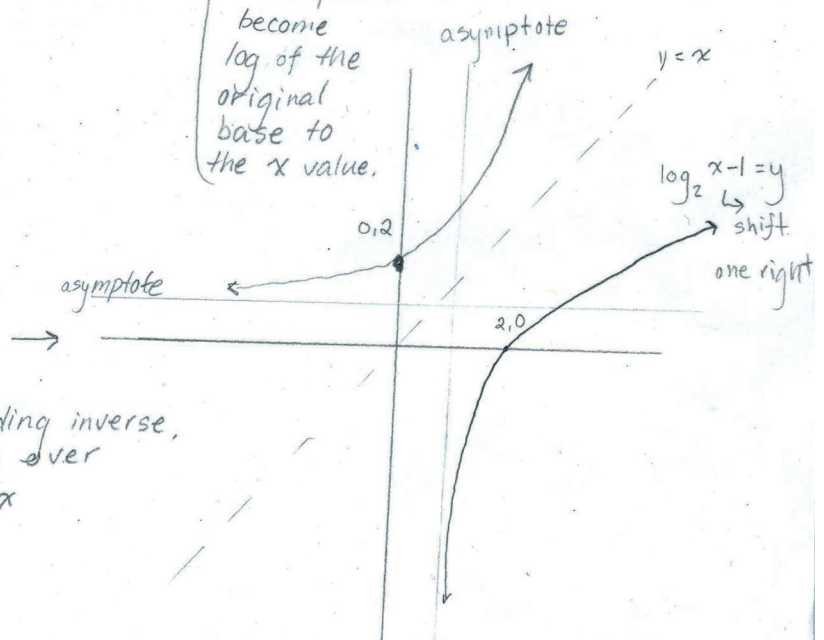 become
log of the
original
base to
the x value.
asymptote
y = x
log₂ x-1 = y
↳ shift
one right
0,2
asymptote
2,0
ding inverse,
over
x